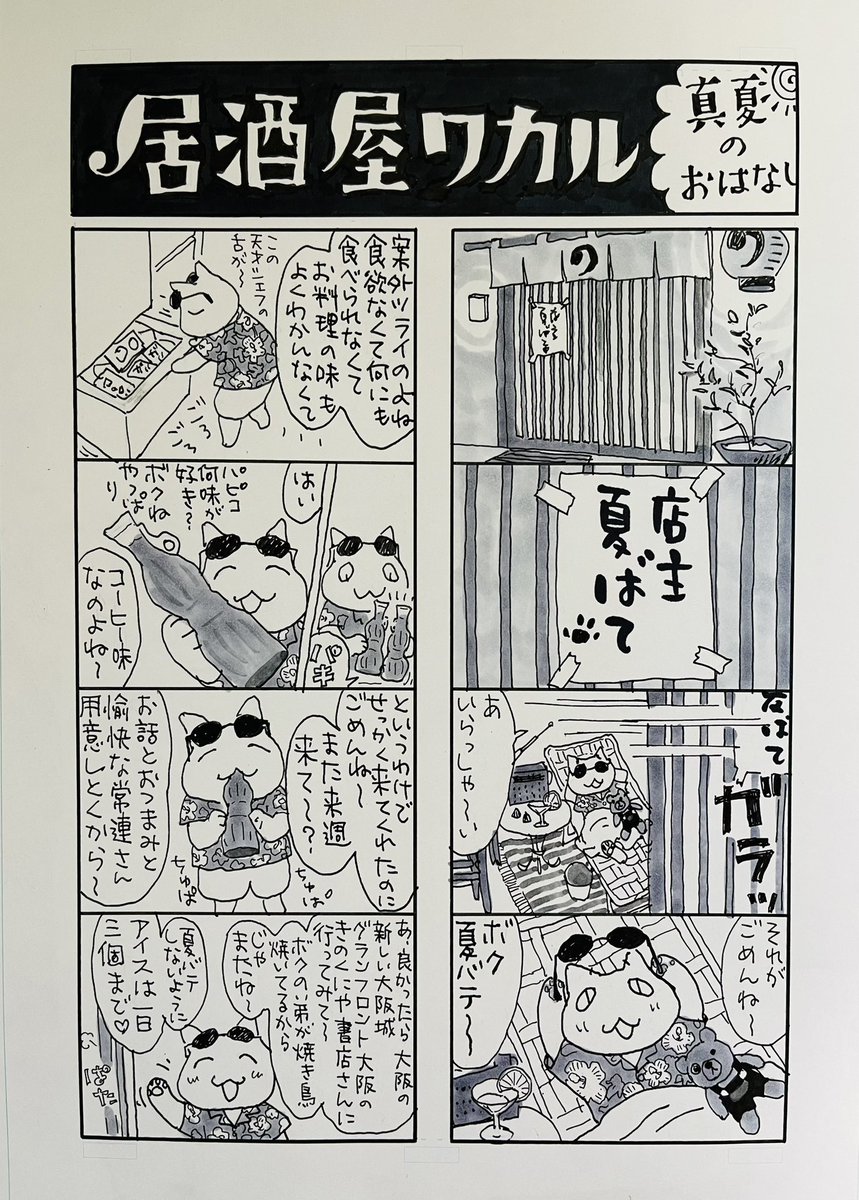 居酒屋ワカル
真夏
の
おはなし
わ
わ
店主
夏ばて
店主
夏ばて
夏ばて
ガラッ
あ
いらっしゃ〜い
それが
ごめんね〜
ボク
夏バテ〜
案外ツライのよね
食欲なくて何にも
食べられなくて
お料理の味も
よくわかんなくて
この
天才シェフの
舌が〜
はい
パキ
パピコ
何味が
好き?
ボクね
やっぱ
り
コーヒー味
なのよね〜
というわけで
せっかく来てくれたのに
ごめんね〜
また来週
来て〜?
ちゅぱ
ちゅぱ
お話とおつまみと
愉快な常連さん
用意しとくから〜
あ、良かったら大阪の
新しい大阪城
グランフロント大阪の
きのくにや書店さんに
行ってみて〜
ボクの弟が焼き鳥
焼いてるから
じゃ
またね〜
夏バテ
しないように
アイスは一日
三個まで♡
ぱた